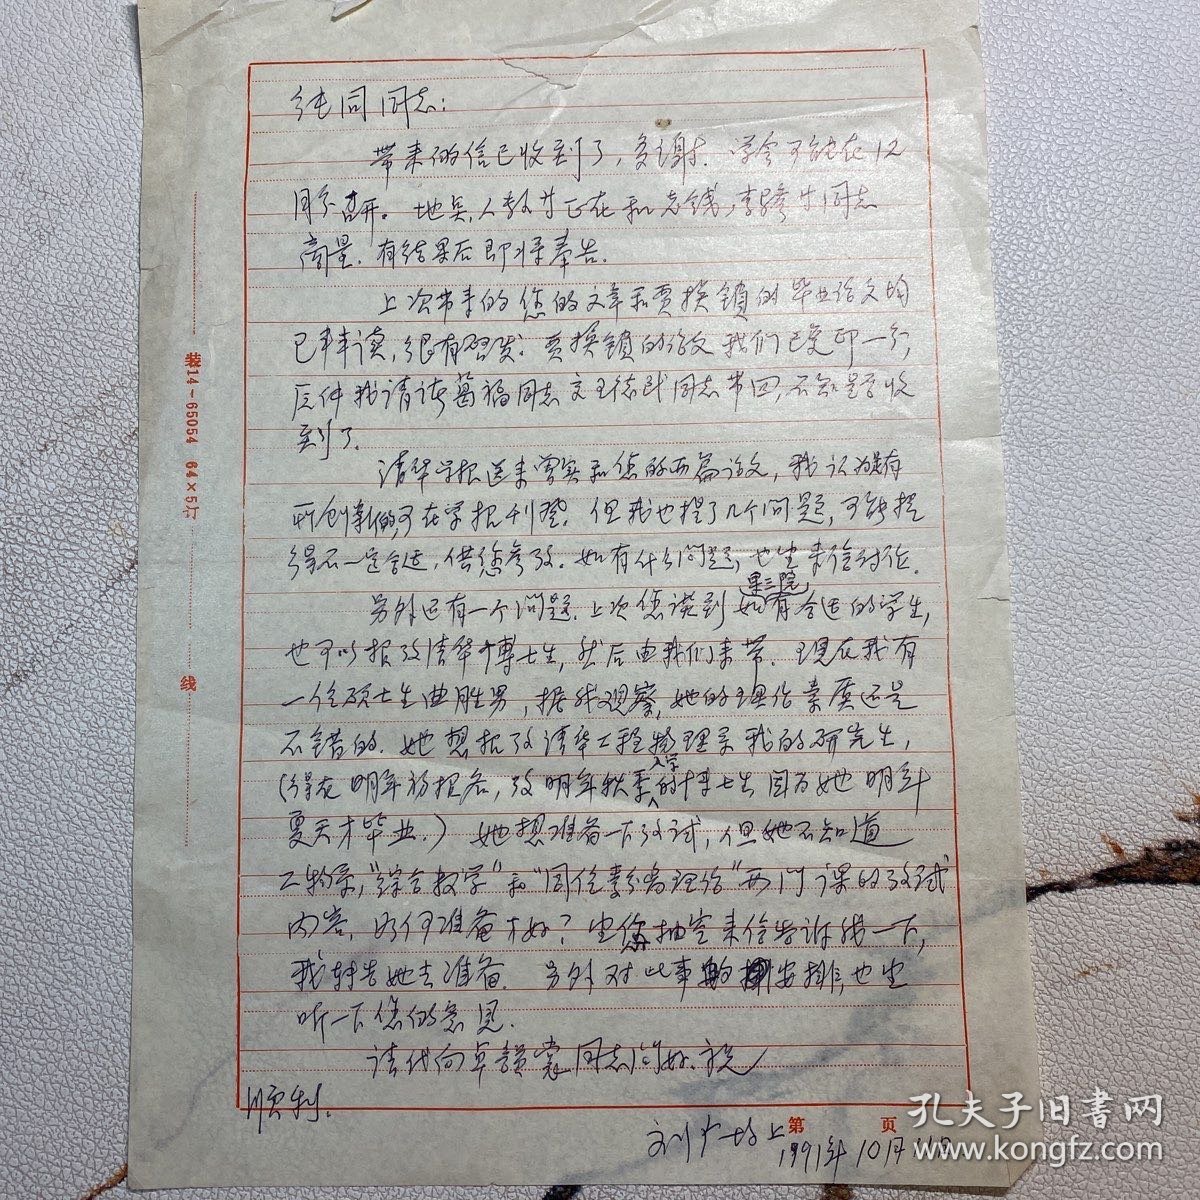 纯同同志:
带来的信已收到了,多谢. 学会可能在12
月份召开。地点,人数等正在和老钱,李
商量. 有结果后即将奉告.
上次带来的您的文章和贾换锁的毕业论文均
已拜读,很有启发. 贾换锁的论文我们已复印一个,
原件我请诸葛福同志交王德民同志带回,不知是否收
到了.
清华学报送来曾实和您的两篇论文, 我认为是有
所创新的,可在学报刊登. 但我也提了几个问题, 可能提
得不一定合适, 供您参考. 如有什么问题, 也望来信讨论.
果三院
另外还有一个问题. 上次您谈到如有合适的学生,
也可以报考清华博士生, 然后由我们来带. 现在我有
一位硕士生曲胜男, 据我观察, 她的理论素质还是
不错的. 她想报考清华工程物理系我的研究生,
入学
(得在明年初报名, 考明年秋季的博士生 因为她明年
夏天才毕业.) 她想准备一下考试, 但她不知道
工物系,"综合数学"和"同位素分离理论"两门课的考试
内容, 如何准备才好? 望您抽空来信告诉我一下,
我转告她去准备. 另外对此事的安排, 也望
听一下您的意见.
请代向卓韻裳同志问好. 祝
顺利.
刘广均上
1991年10月11日
第 页
装14-65054 64×5订
线
孔夫子旧书网
www.kongfz.com